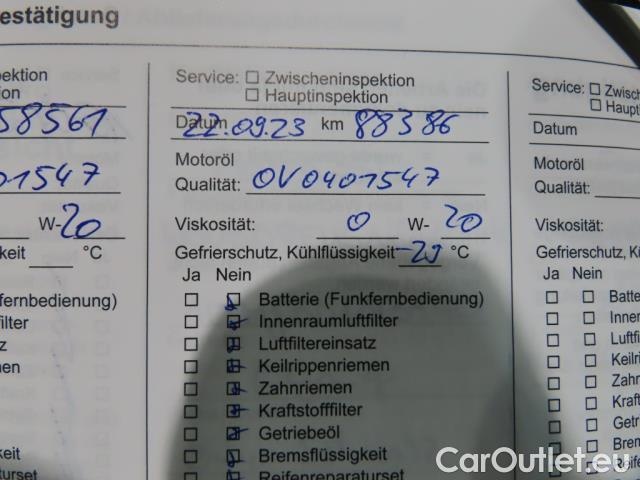 estätigung
pektion
ktion
58561
01547
W- 20
keit °C
fernbedienung)
filter
z
men
keit
raturset
Service: ☐ Zwischeninspektion
☐ Hauptinspektion
Datum 22.09.23 km 88386
Motoröl
Qualität: OV0401547
Viskosität: 0 W- 20
Gefrierschutz, Kühlflüssigkeit -29 °C
Ja Nein
Batterie (Funkfernbedienung)
Innenraumluftfilter
Luftfiltereinsatz
Keilrippenriemen
Zahnriemen
Kraftstofffilter
Getriebeöl
Bremsflüssigkeit
Reifenreparaturset
Service: ☐ Zwisch
☐ Haupt
Datum
Motoröl
Qualität:
Viskosität:
Gefrierschutz, Kü
Ja Nein
Batte
Inne
Luftfi
Keilr
Zahn
Kraft
Getri
Brem
Reife
CarOutlet.eu